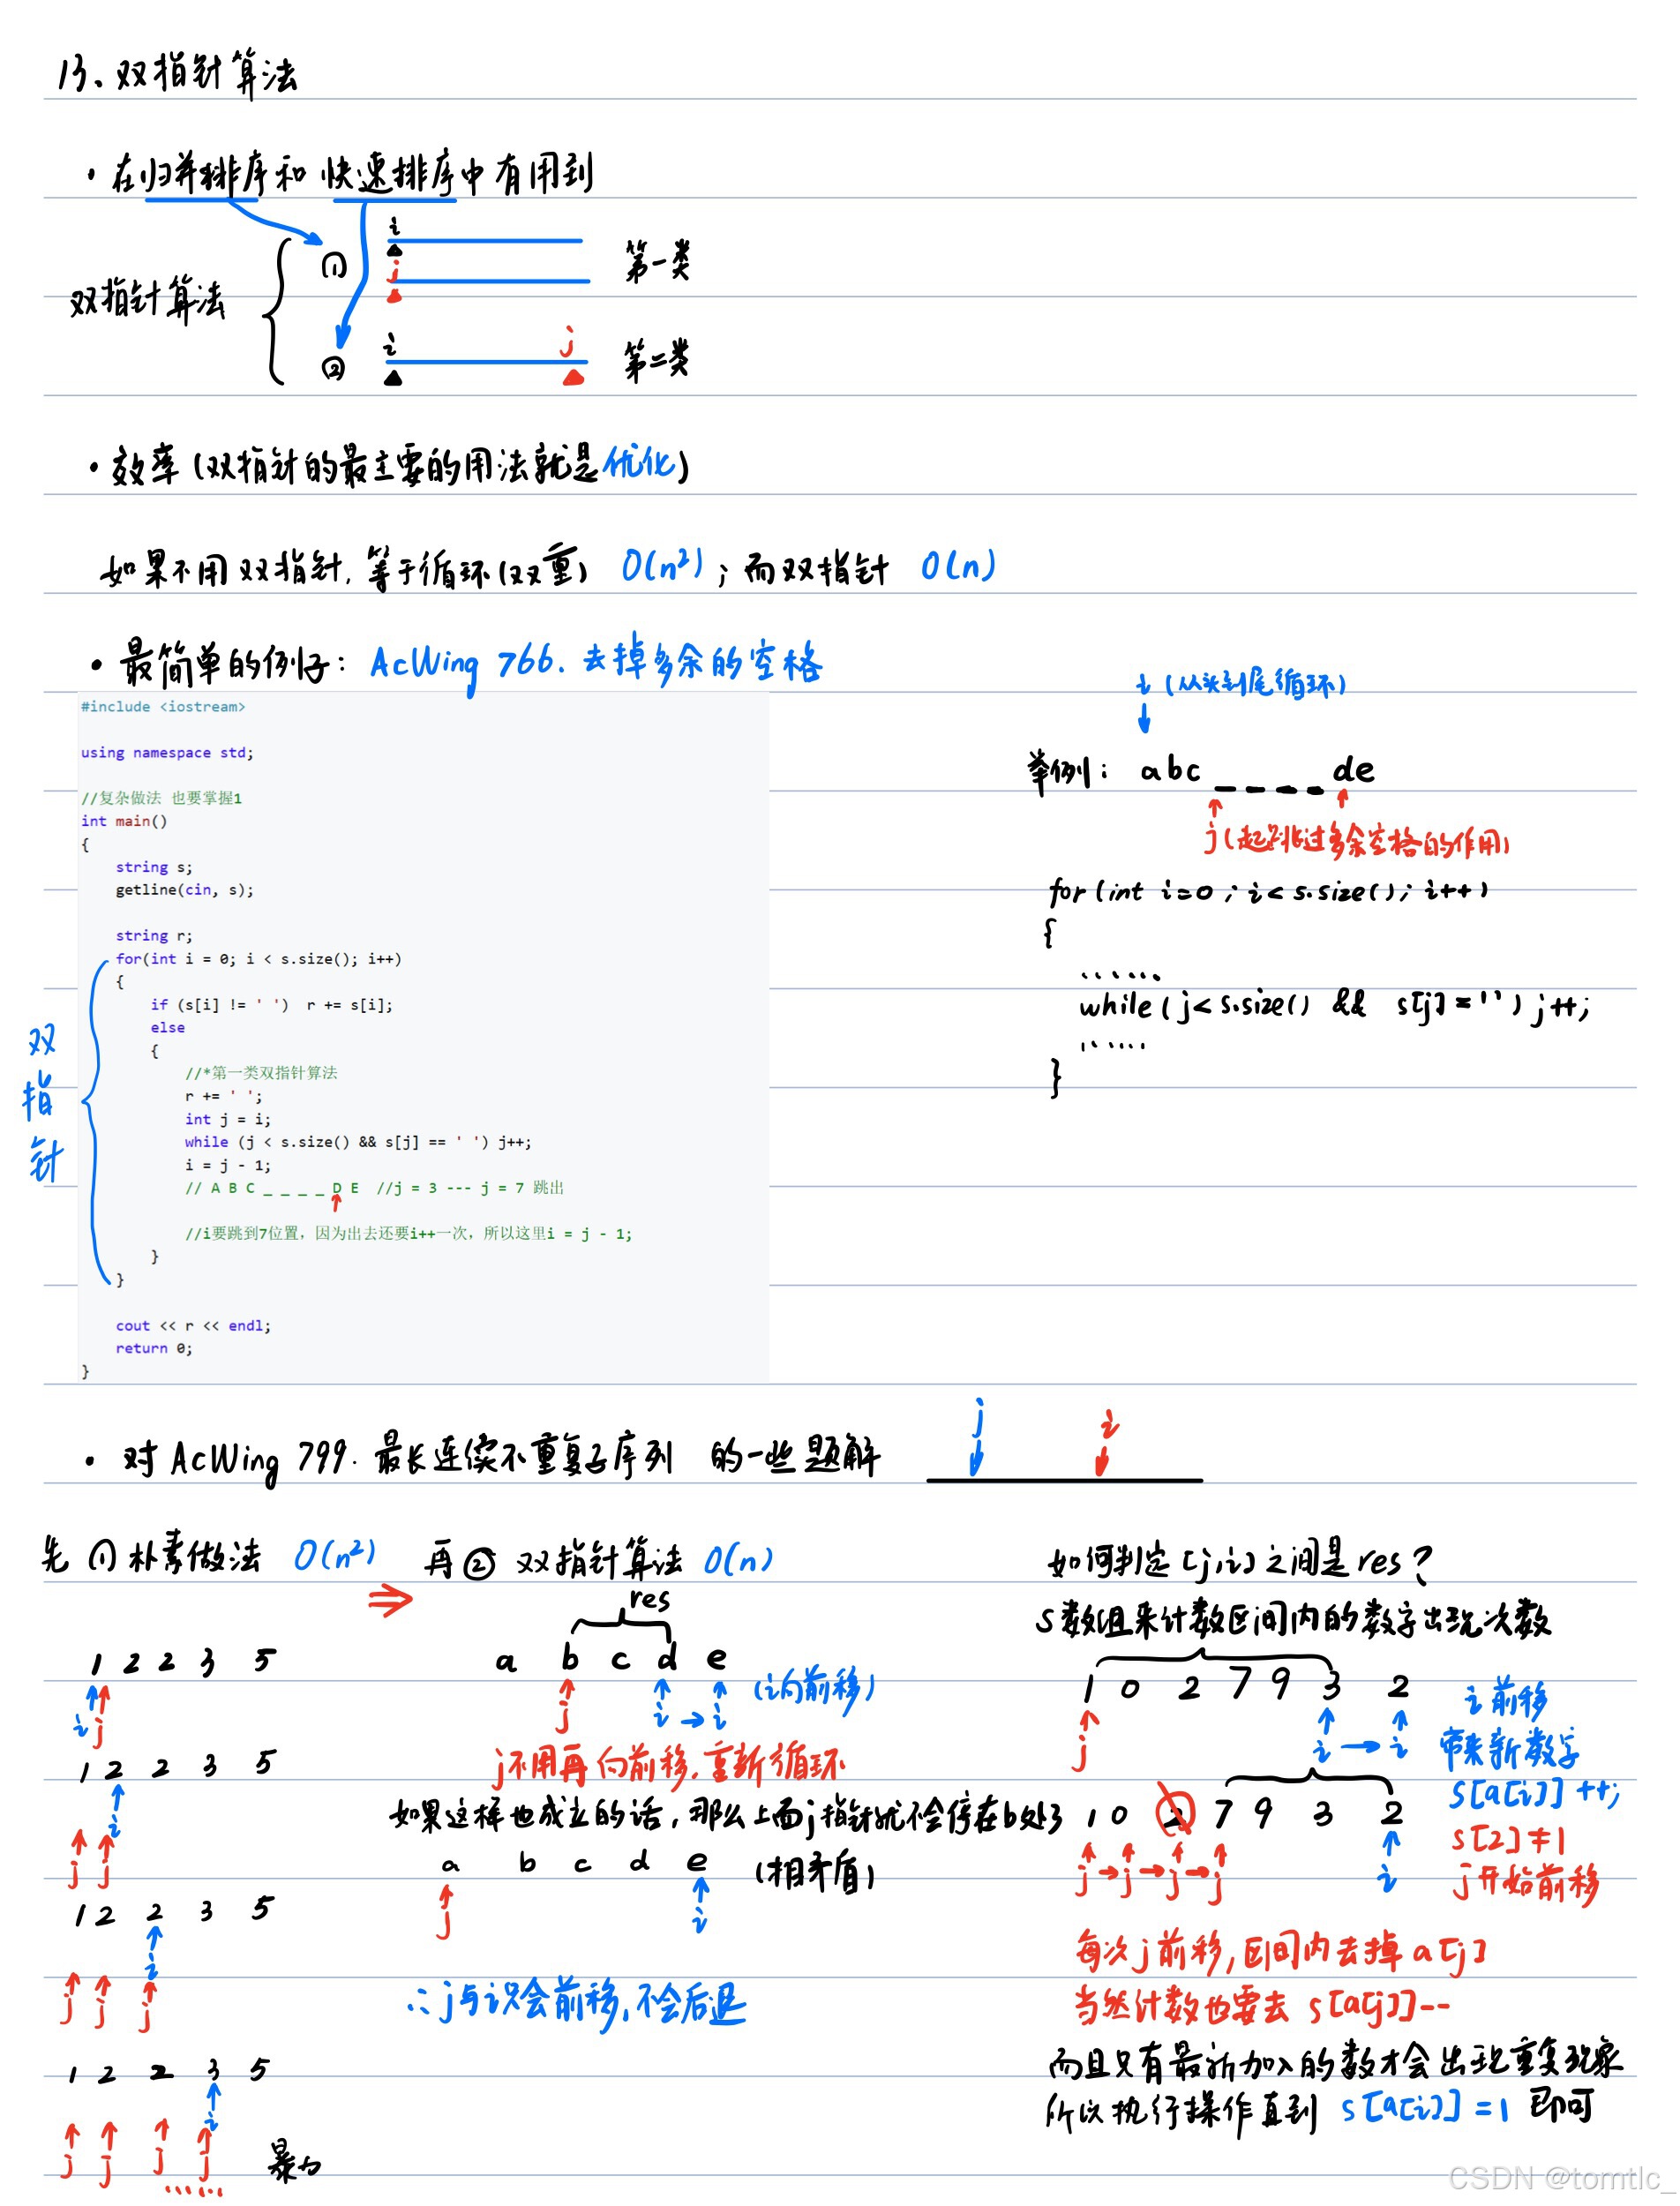 13、双指针算法
· 在归并排序和 快速排序中有用到
双指针算法
① i j 第一类
② i j 第二类
· 效率(双指针的最主要的用法就是优化)
如果不用双指针,等于循环(双重) O(n²);而双指针 O(n)
· 最简单的例子: AcWing 766. 去掉多余的空格
#include <iostream>
using namespace std;
//复杂做法 也要掌握1
int main()
{
string s;
getline(cin, s);
string r;
for(int i = 0; i < s.size(); i++)
{
if (s[i] != ' ') r += s[i];
else
{
//*第一类双指针算法
r += ' ';
int j = i;
while (j < s.size() && s[j] == ' ') j++;
i = j - 1;
// A B C _ _ _ _ D E //j = 3 --- j = 7 跳出
//i要跳到7位置, 因为出去还要i++一次, 所以这里i = j - 1;
}
}
cout << r << endl;
return 0;
}
双指针
i (从头到尾循环)
举例: abc _ _ _ _ de
j(起跳过多余空格的作用)
for(int i=0; i< s.size(); i++)
{
......
while(j< s.size() && s[j]='') j++;
.....
}
· 对 AcWing 799. 最长连续不重复子序列 的一些题解
j i
先 ① 朴素做法 O(n²) ⇒ 再② 双指针算法 O(n)
1 2 2 3 5
i j
1 2 2 3 5
i
j j
1 2 2 3 5
i
j j j
1 2 2 3 5
i
j j j j
......
暴力
res
a b c d e
(i向前移)
j i → i
j不用再向前移,重新循环
如果这样也成立的话,那么上面j指针就不会停在b处了
a b c d e (相矛盾)
j i
∴ j与i只会前移,不会后退
如何判定[j,i]之间是res?
S数组来计数区间内的数字出现次数
1 0 2 7 9 3 2
j i → i
i前移
带来新数字
s[a[i]]++;
1 0 2 7 9 3 2
s[2]≠1
j → j → j → j i
j开始前移
每次j前移,区间内去掉a[j]
当然计数也要去 s[a[j]]--
而且只有最新加入的数才会出现重复现象
所以执行操作直到 s[a[i]]=1 即可
CSDN @tomtlc_